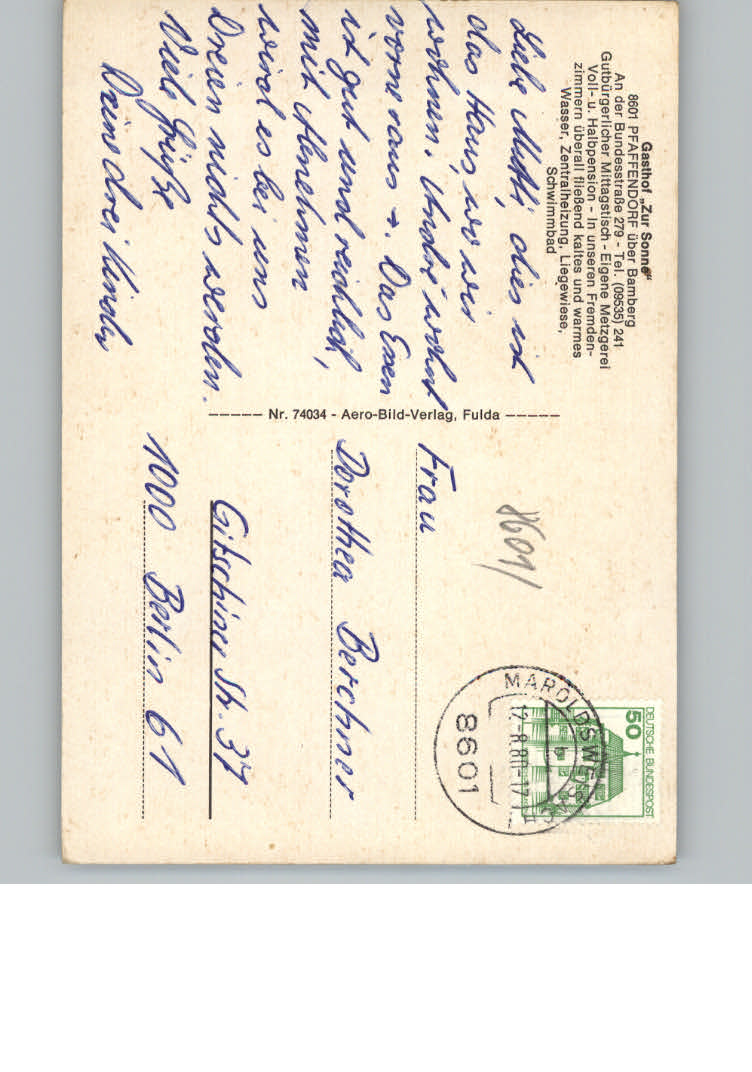 Gasthof „Zur Sonne"
8601 PFAFFENDORF über Bamberg
An der Bundesstraße 279 - Tel. (09535) 241
Gutbürgerlicher Mittagstisch - Eigene Metzgerei
Voll- u. Halbpension - In unseren Fremden-
zimmern überall fließend kaltes und warmes
Wasser, Zentralheizung, Liegewiese,
Schwimmbad
Liebe Mutti, dies ist
das Haus, wo wir
wohnen. André wohnt
vorne raus →. Das Essen
ist gut und reichlich,
mit Abnehmen
wird es bei uns
Dreien nichts werden.
Viele Grüße
Deine drei Kinder
Nr. 74034 - Aero-Bild-Verlag, Fulda
8601
DEUTSCHE BUNDESPOST
50
12.-8.80-17
8601
Frau
Dorothea Berchner
Gitschiner Str. 37
1000 Berlin 61